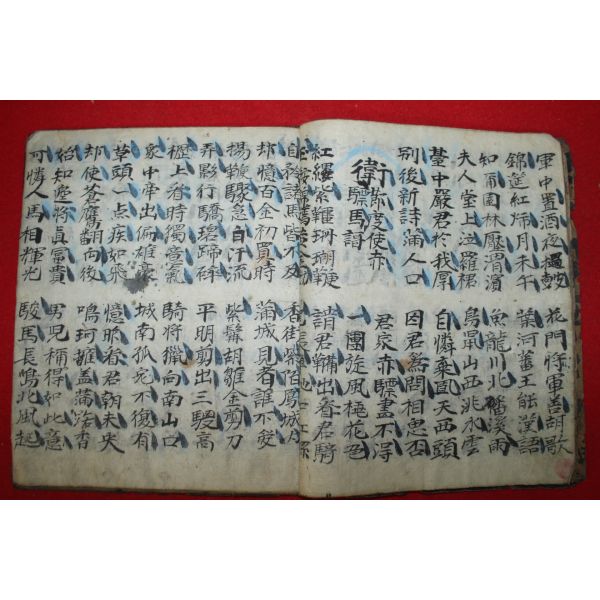 軍中置酒夜撾鼓 花門將軍善胡歌
錦筵紅烛月未午 葉河蕃王能漢語
知爾園林壓渭濱 魚龍川北蟠溪雨
夫人堂上泣羅裙 鳥鼠山西洮水雲
臺中嚴君於我厚 自憐棄置天西頭
別後新詩滿人口 因君爲問相思否
衛節度使赤驃馬謌
君家赤驃畫不得
一團旋風桃花色
紅纓紫鞚珊瑚鞭 請君鞴出看君騎
自矜諸馬皆不及 香街紫陌鳳城內
却憶百金初買時 滿城見者誰不愛
揚鞭驟急白汗流 紫髯胡雛金剪刀
弄影行驕碧蹄碎 平明剪出三鬉高
櫪上看時獨意氣 騎將獵向南山口
衆中牽出偏雄豪 城南狐兎不復有
草頭一点疾如飛 憶昨看君朝未央
却使蒼鷹翻向後 鳴珂擁蓋滿路香
始知邊將眞富貴 男兒稱得如此意
可憐人馬相輝光 駿馬長鳴北風起